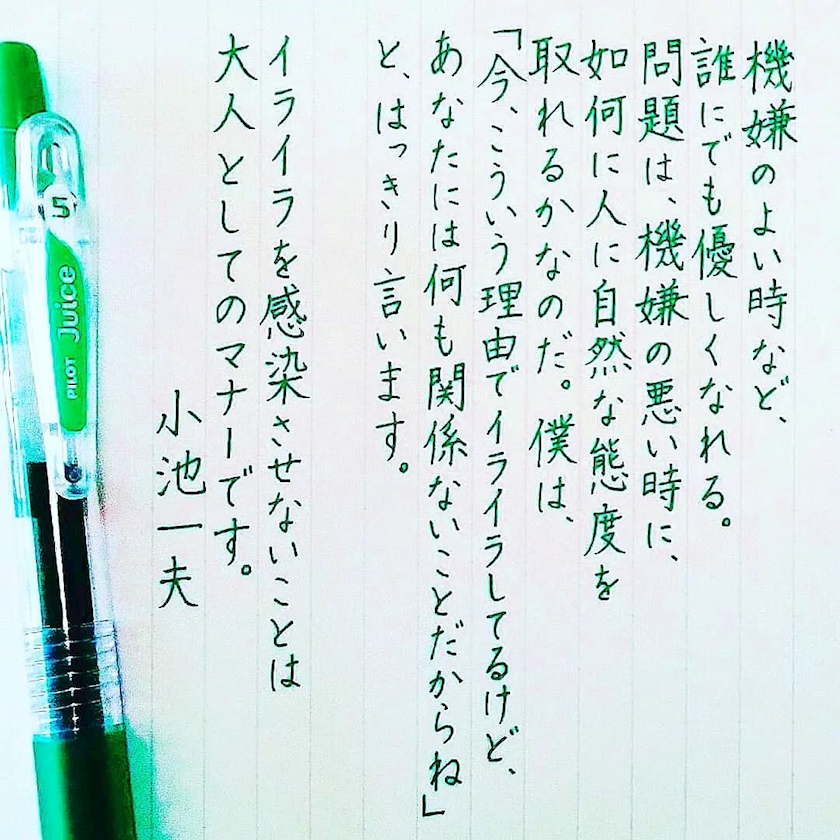 機嫌のよい時など、
誰にでも優しくなれる。
問題は、機嫌の悪い時に、
如何に人に自然な態度を
取れるかなのだ。僕は、
「今、こういう理由でイライラしてるけど、
あなたには何も関係ないことだからね」
と、はっきり言います。
イライラを感染させないことは
大人としてのマナーです。
小池一夫
5
PILOT Juice